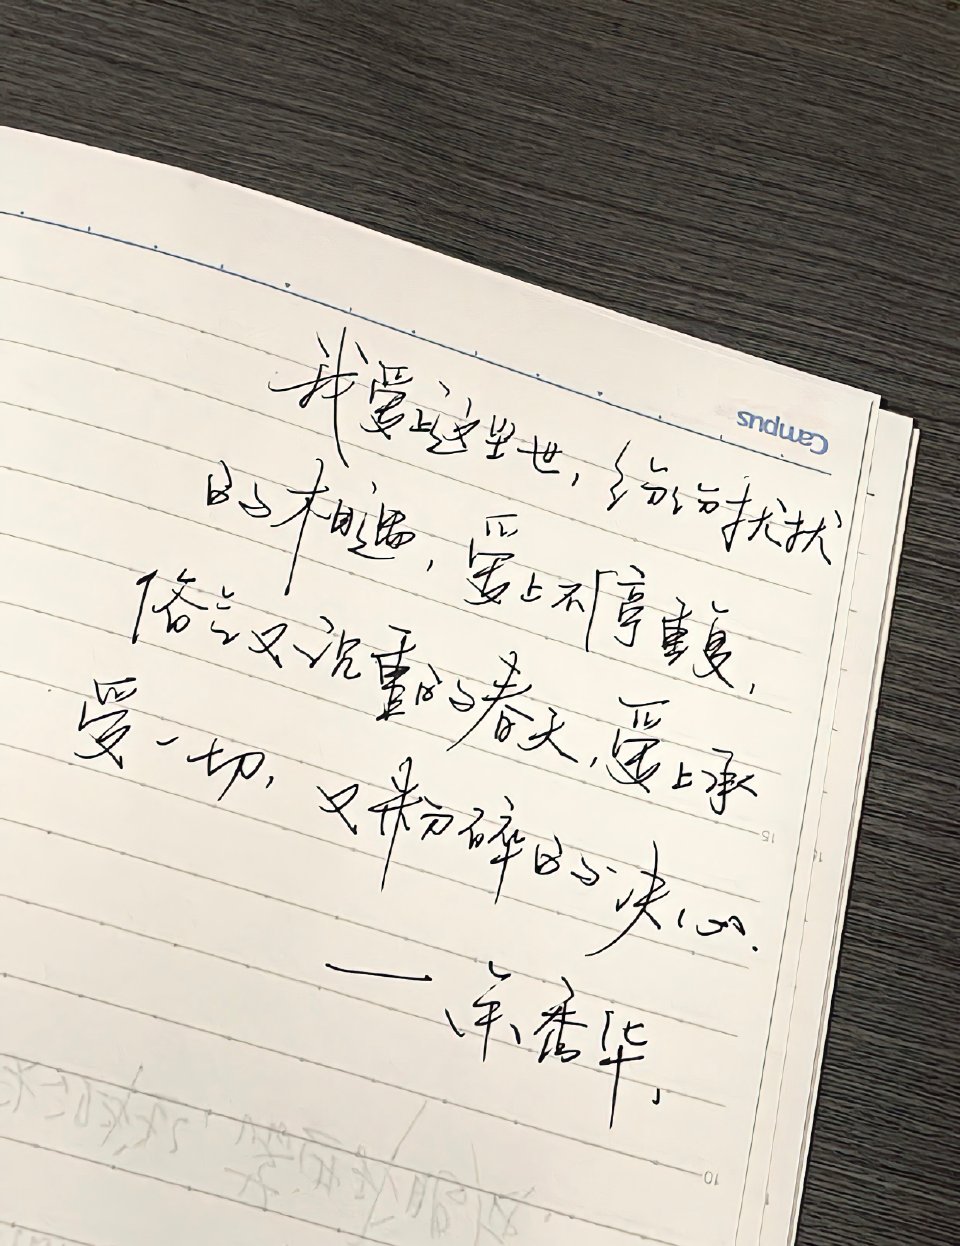 Campus
我爱上这尘世，纷纷扰扰
的相遇，爱上不停重复，
俗气又沉重的春天，爱上承
受一切，又粉碎的决心.
——余秀华
15
10